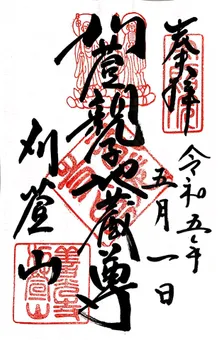 奉拝
令和五年
五月一日
刈萱親子地蔵尊
刈萱山